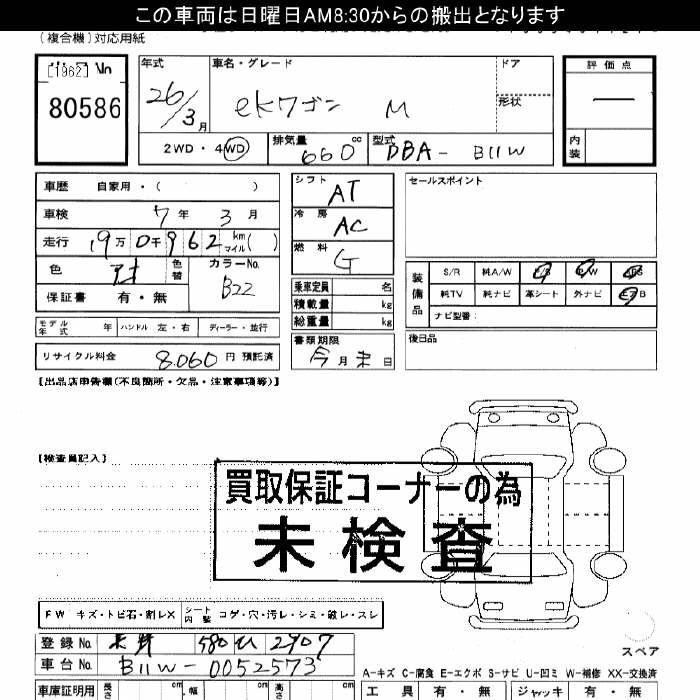 この車両は日曜日AM8:30からの搬出となります
(複合機)対応用紙
[1962]
80586
年式 26/3月
車名・グレード ekワゴン M
ドア
形状
評価点 —
内装
2WD・4WD
排気量 660 cc
型式 DBA-B11W
車歴 自家用・( )
車検 7年 3月
走行 9万0千962 km マイル( )
色 アオ 色替 カラーNo. B22
保証書 有・無
モデル年式 年 ハンドル 左・右 ディーラー・並行
リサイクル料金 8.060円 預託済
シフト AT
冷房 AC
燃料 G
乗車定員 名
積載量 kg
総重量 kg
書類期限 今月末日
セールスポイント
装備品 S/R 純A/W P/S P/W ABS
純TV 純ナビ 革シート 外ナビ エアB
ナビ型番:
後日品
【出品店申告欄(不良箇所・欠品・注意事項等)】
【検査員記入】
買取保証コーナーの為
未検査
FW キズ・トビ石・割レX シート内装 コゲ・穴・汚レ・シミ・破レ・スレ
登録No. 長野 580 い 2907
車台No. B11W-0052573
車庫証明用 長さ cm 幅 cm 高さ cm
スペア
A-キズ C-腐食 E-エクボ S-サビ U-凹ミ W-補修 XX-交換済
工具 有・無 ジャッキ 有・無